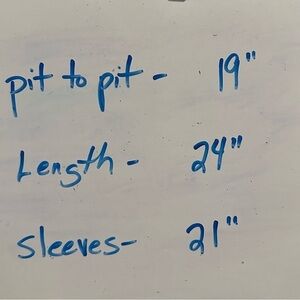 pit to pit - 19"
Length - 24"
sleeves- 21"